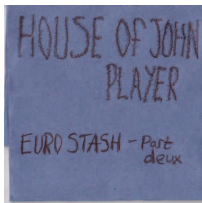 HOUSE OF JOHN
PLAYER
EURO STASH - Part
deux